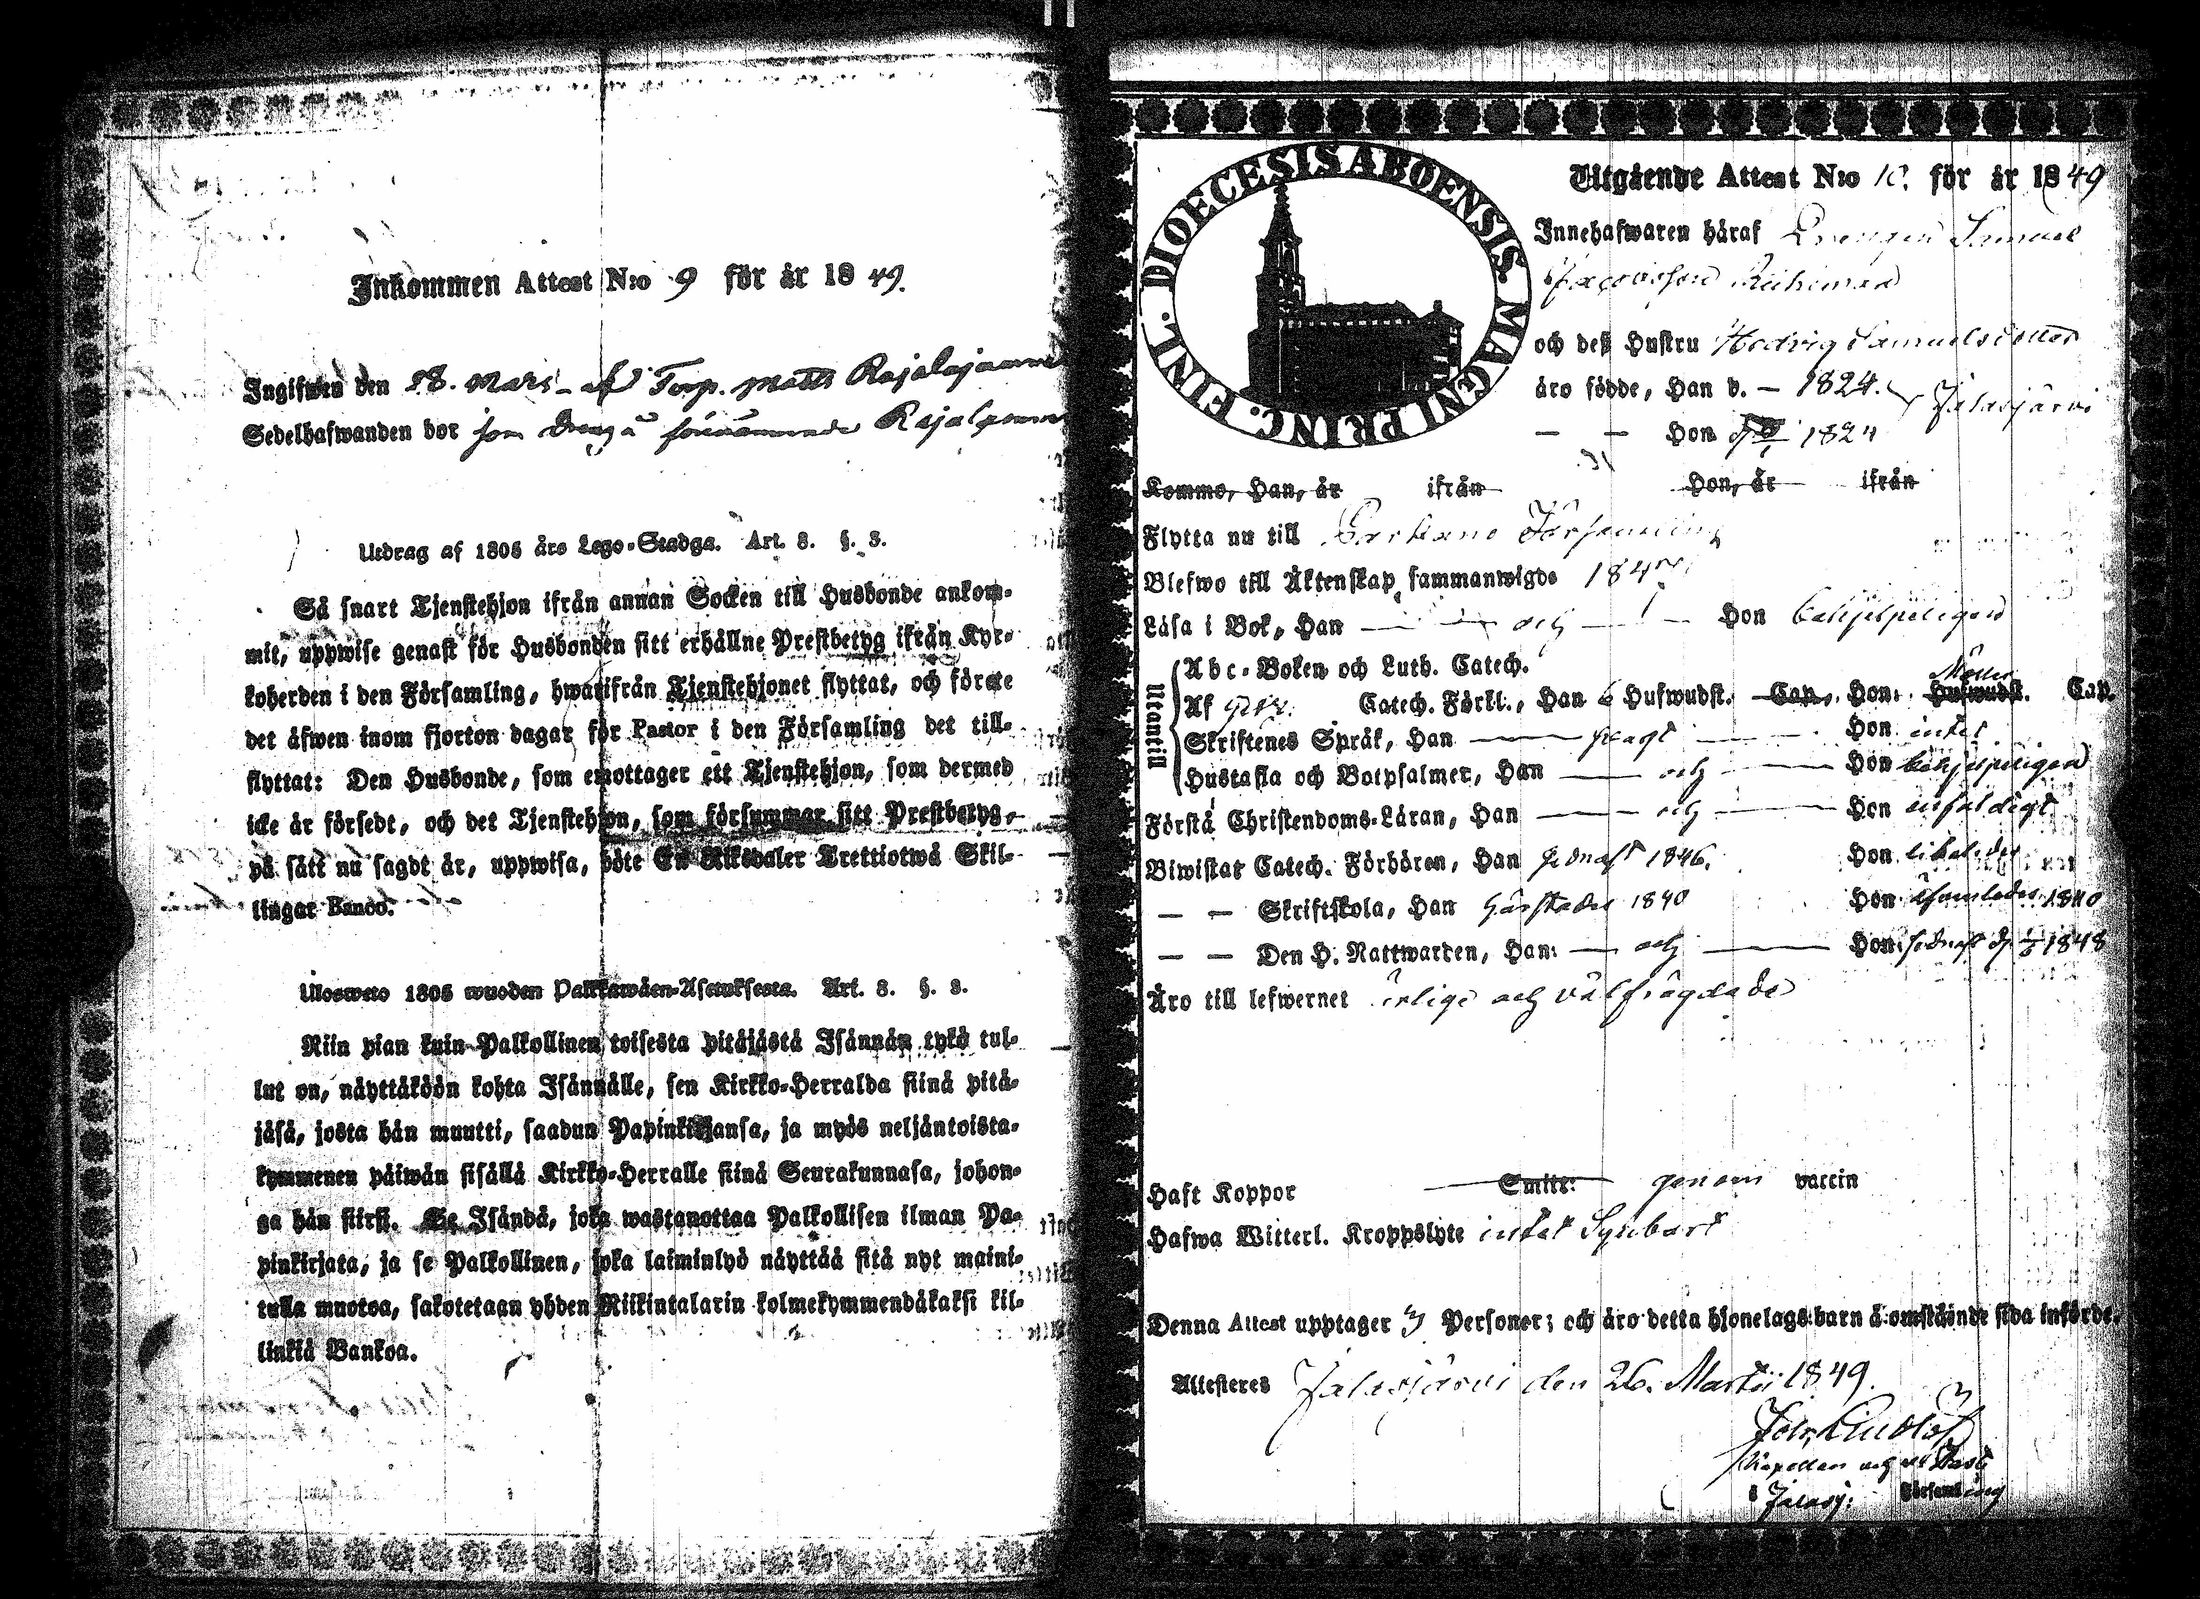 Inkommen Attest N:o 9 för år 1849.
Ingifwen den 28. Mars - af Torp. Matts Rajalajaanne
Sedelhafwanden bor som Dreng å förenämnde
Utdrag af 1805 års Lego-Stadga. Art. 3. §. 3.
Så snart Tjenstehjon ifrån annan Socken till Husbonde ankom-
mit, uppwise genast för Husbonden sitt erhållne Prestbetyg ifrån Kyr-
koherden i den Församling, hwarifrån Tjenstehjonet flyttat, och förete
det äfwen inom fjorton dagar för Pastor i den Församling det till-
flyttat: Den Husbonde, som emottager ett Tjenstehjon, som dermed
icke är försedt, och det Tjenstehjon, som försummar sitt Prestbetyg,
på sätt nu sagdt är, uppwisa, böte En Riksdaler Trettiotwå Skil-
lingar Banco.
Ulosweto 1805 wuoden Palkkawäen-Asetuksesta. Art. 3. §. 3.
Niin pian kuin Palkollinen toisesta pitäjästä Isännän tykö tul-
lut on, näyttäköön kohta Isännälle, sen Kirkko-Herralda siinä pitä-
jäsä, josta hän muutti, saadun Papinkirjansa, ja myös neljäntoista-
kymmenen päiwän sisällä Kirkko-Herralle siinä Seurakunnasa, johon-
ga hän siirsi. Se Isändä, joka wastanottaa Palkollisen ilman Pa-
pinkirjata, ja se Palkollinen, joka laiminlyö näyttää sitä nyt maini-
tulla muotoa, sakotetaan yhden Riikintalarin kolmekymmendäkaksi kil-
linkiä Bankoa.
DIOECESIS ABOENSIS. MAGNI PRINC. FINL.
Utgående Attest N:o 10. för år 1849
Innehafwaren häraf Drengen Samuel
Jacobsson
och deß Hustru Hedvig Samuelsdotter
äro födde, Han d. — 1824. Jalasjärvi
— — Hon 1824
Komme, Han, år ifrån Hon, år ifrån
Flytta nu till Församling
Blefwo till Äktenskap sammanwigde
Läsa i Bok, Han — och — Hon behjelpeligen
Utantill
Abc-Boken och Luth. Catech.
Af Catech. Förkl., Han 6 Hufwudst. Cap. Hon: Hufwudst. Cap.
Skriftenes Språk, Han — — Hon intet
Hustafla och Botpsalmer, Han — och — Hon behjelpeligen
Förstå Christendoms-Läran, Han — och — Hon enfaldigt
Biwistat Catech. Förhören, Han sednast 1846. Hon likaledes
— — Skriftskola, Han 1840 Hon 1840
— — Den H. Nattwarden, Han: — och — Hon sednast 1848
Äro till lefwernet ärlige och välfrägdade
Haft Koppor Smitt: genom vaccin
Hafwa Witterl. Kroppslyte intet Synbart
Denna Attest upptager 3 Personer; och äro detta hjonelags barn å omstående sida införde.
Attesteres Jalasjärvi den 26. Martii 1849.
Kapellan och
i Jalasj: Församling